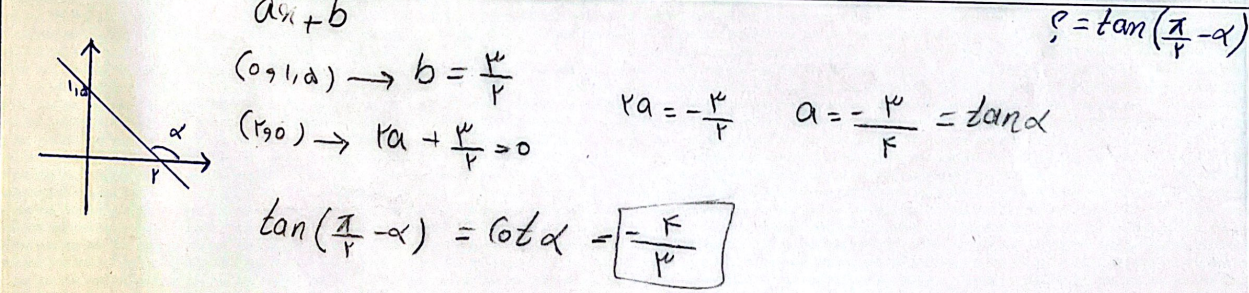 ax + b
? = tan(π/۲ - α)
(۰ و ۱,۵) → b = ۳/۲
(۲ و ۰) → ۲a + ۳/۲ = ۰
۲a = -۳/۲ a = -۳/۴ = tanα
۱,۵
α
۲
tan(π/۲ - α) = Cotα = -۴/۳